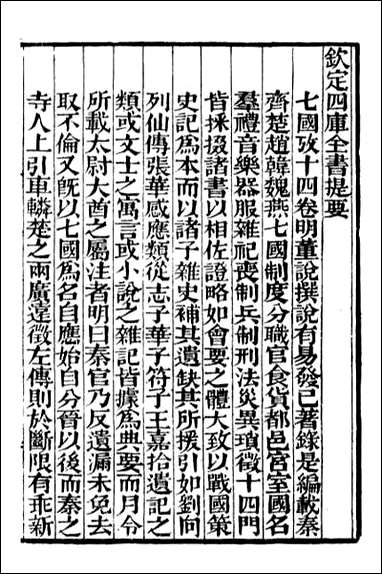 欽定四庫全書提要
七國攷十四卷明董說撰說有易發已著錄是編載秦
齊楚趙韓魏燕七國制度分職官食貨都邑宮室國名
羣禮音樂器服雜祀喪制兵制刑法災異瑣徵十四門
皆採掇諸書以相佐證略如會要之體大致以戰國策
史記爲本而以諸子雜史補其遺缺其所援引如劉向
列仙傳張華感應類從志子華子符子王嘉拾遺記之
類或文士之寓言或小說之雜記皆據爲典要而月令
所載大尉大酋之屬注者明曰秦官乃反遺漏未免去
取不倫又旣以七國爲名自應始自分晉以後而秦之
寺人上引車轔楚之兩廣遠徵左傳則於斷限有乖新